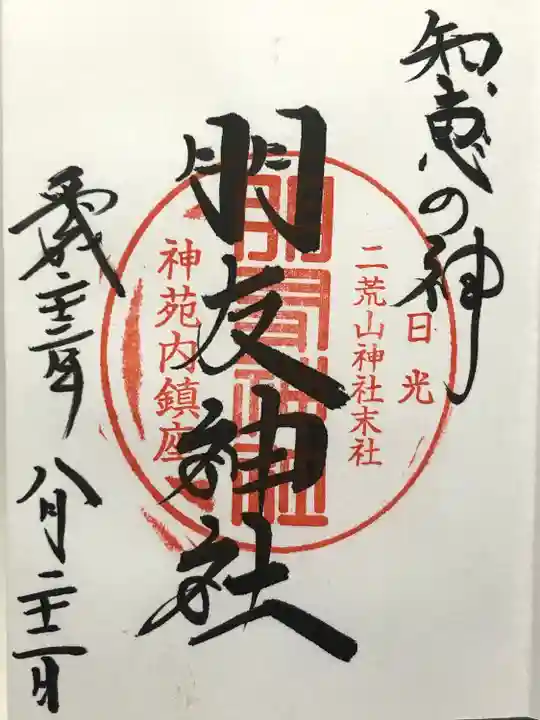 知恵の神
日光
二荒山神社末社
朋友神社
朋友神社
神苑内鎮座
平成
八月二十二日